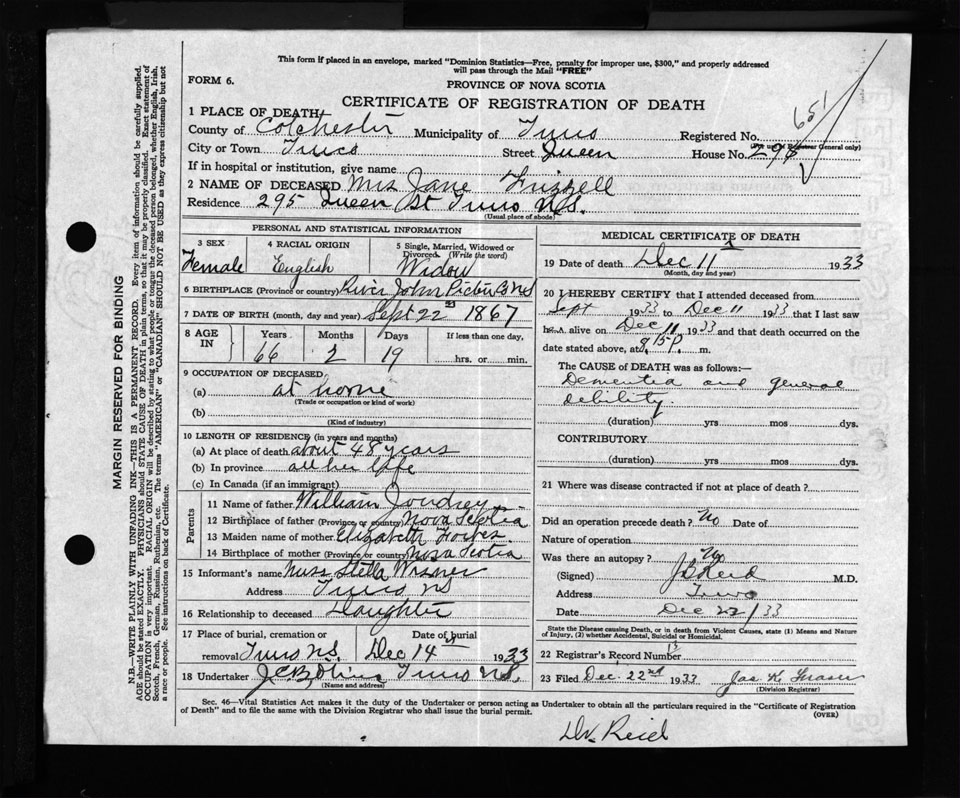 This form if placed in an envelope, marked "Dominion Statistics—Free, penalty for improper use, $300," and properly addressed
will pass through the Mail "FREE"
FORM 6.
PROVINCE OF NOVA SCOTIA
CERTIFICATE OF REGISTRATION OF DEATH
651
1 PLACE OF DEATH
County of Colchester Municipality of Truro Registered No.
(For use of Registrar General only)
City or Town Truro Street Queen House No. 295
If in hospital or institution, give name
2 NAME OF DECEASED Mrs Jane Frizzell
Residence 295 Queen St Truro N.S.
(Usual place of abode)
PERSONAL AND STATISTICAL INFORMATION
3 SEX 4 RACIAL ORIGIN 5 Single, Married, Widowed or Divorced. (Write the word)
Female English Widow
6 BIRTHPLACE (Province or country) River John Pictou Co NS
7 DATE OF BIRTH (month, day and year) Sept 22 1867
8 AGE IN Years Months Days If less than one day,
66 2 19 hrs. or min.
9 OCCUPATION OF DECEASED
(a) at home
(Trade or occupation or kind of work)
(b)
(Kind of industry)
10 LENGTH OF RESIDENCE (in years and months)
(a) At place of death about 48 years
(b) In province all her life
(c) In Canada (if an immigrant)
Parents
11 Name of father William Joudrey
12 Birthplace of father (Province or country) Nova Scotia
13 Maiden name of mother Elizabeth Forbes
14 Birthplace of mother (Province or country) Nova Scotia
15 Informant's name Miss Stella
Address Truro, NS
16 Relationship to deceased Daughter
17 Place of burial, cremation or Date of burial
removal Truro NS. Dec 14 1933
18 Undertaker Truro N.S.
(Name and address)
MEDICAL CERTIFICATE OF DEATH
19 Date of death Dec 11 1933
(Month, day and year)
20 I HEREBY CERTIFY that I attended deceased from
Sept 1933 to Dec 11 1933 that I last saw
h alive on Dec 11 1933 and that death occurred on the
date stated above, at 8.15 P. m.
The CAUSE OF DEATH was as follows:—
Dementia and general
debility.
(duration) yrs mos dys.
CONTRIBUTORY
(duration) yrs mos dys.
21 Where was disease contracted if not at place of death?
Did an operation precede death? No Date of
Nature of operation
Was there an autopsy? No
(Signed) J B Reid M.D.
Address Truro
Date Dec 22/33
State the Disease causing Death, or in death from Violent Causes, state (1) Means and Nature
of Injury, (2) whether Accidental, Suicidal or Homicidal.
22 Registrar's Record Number
23 Filed Dec. 22nd 1933 Jas K Fraser
(Division Registrar)
Sec. 46—Vital Statistics Act makes it the duty of the Undertaker or person acting as Undertaker to obtain all the particulars required in the "Certificate of Registration
of Death" and to file the same with the Division Registrar who shall issue the burial permit.
(OVER)
Dr. Reid
MARGIN RESERVED FOR BINDING
N.B.—WRITE PLAINLY WITH UNFADING INK—THIS IS A PERMANENT RECORD. Every item of information should be carefully supplied.
AGE should be stated EXACTLY. PHYSICIANS should STATE CAUSE OF DEATH in plain terms, so that it may be properly classified. Exact statement of
OCCUPATION is very important. RACIAL ORIGIN will be described by stating to what people or tongue the deceased person belonged, whether English, Irish,
Scotch, French, German, Russian, Ruthenian, etc. The terms "AMERICAN" or "CANADIAN" SHOULD NOT BE USED as they express citizenship but not
a race or people. See instructions on back of Certificate.